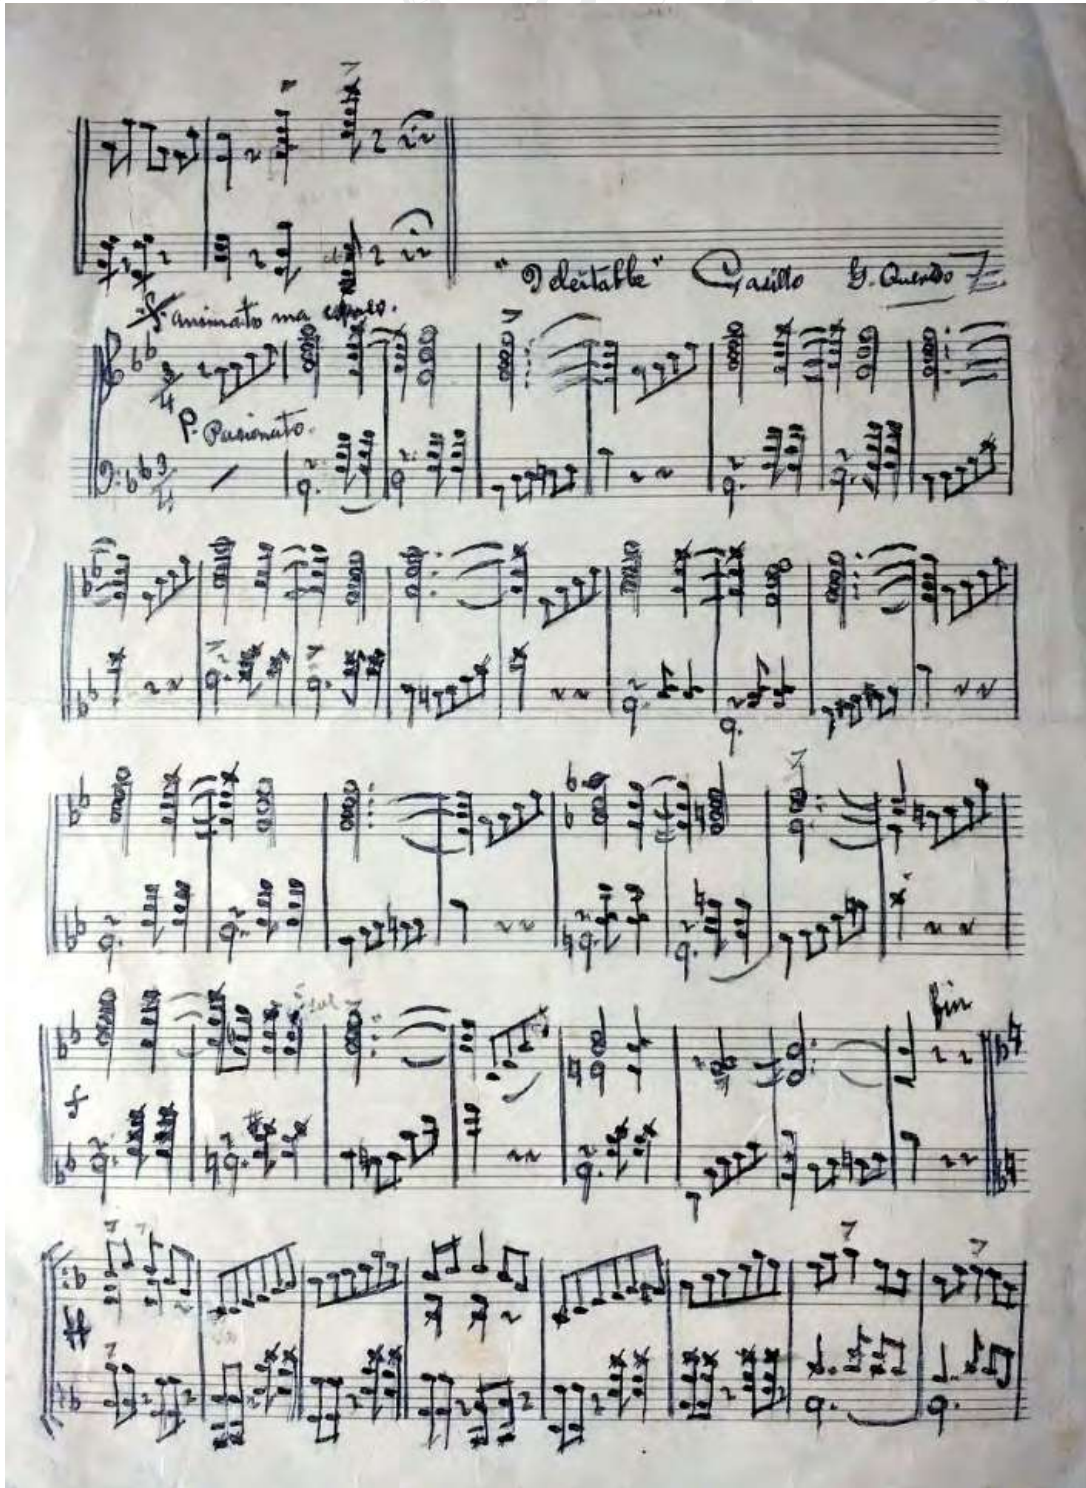 "Deleitable" Pasillo G. Querido
animato ma
3/4
P. Pasionato.
3/4
f
fin
ff